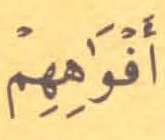 أَفْوَٰهِهِمْ